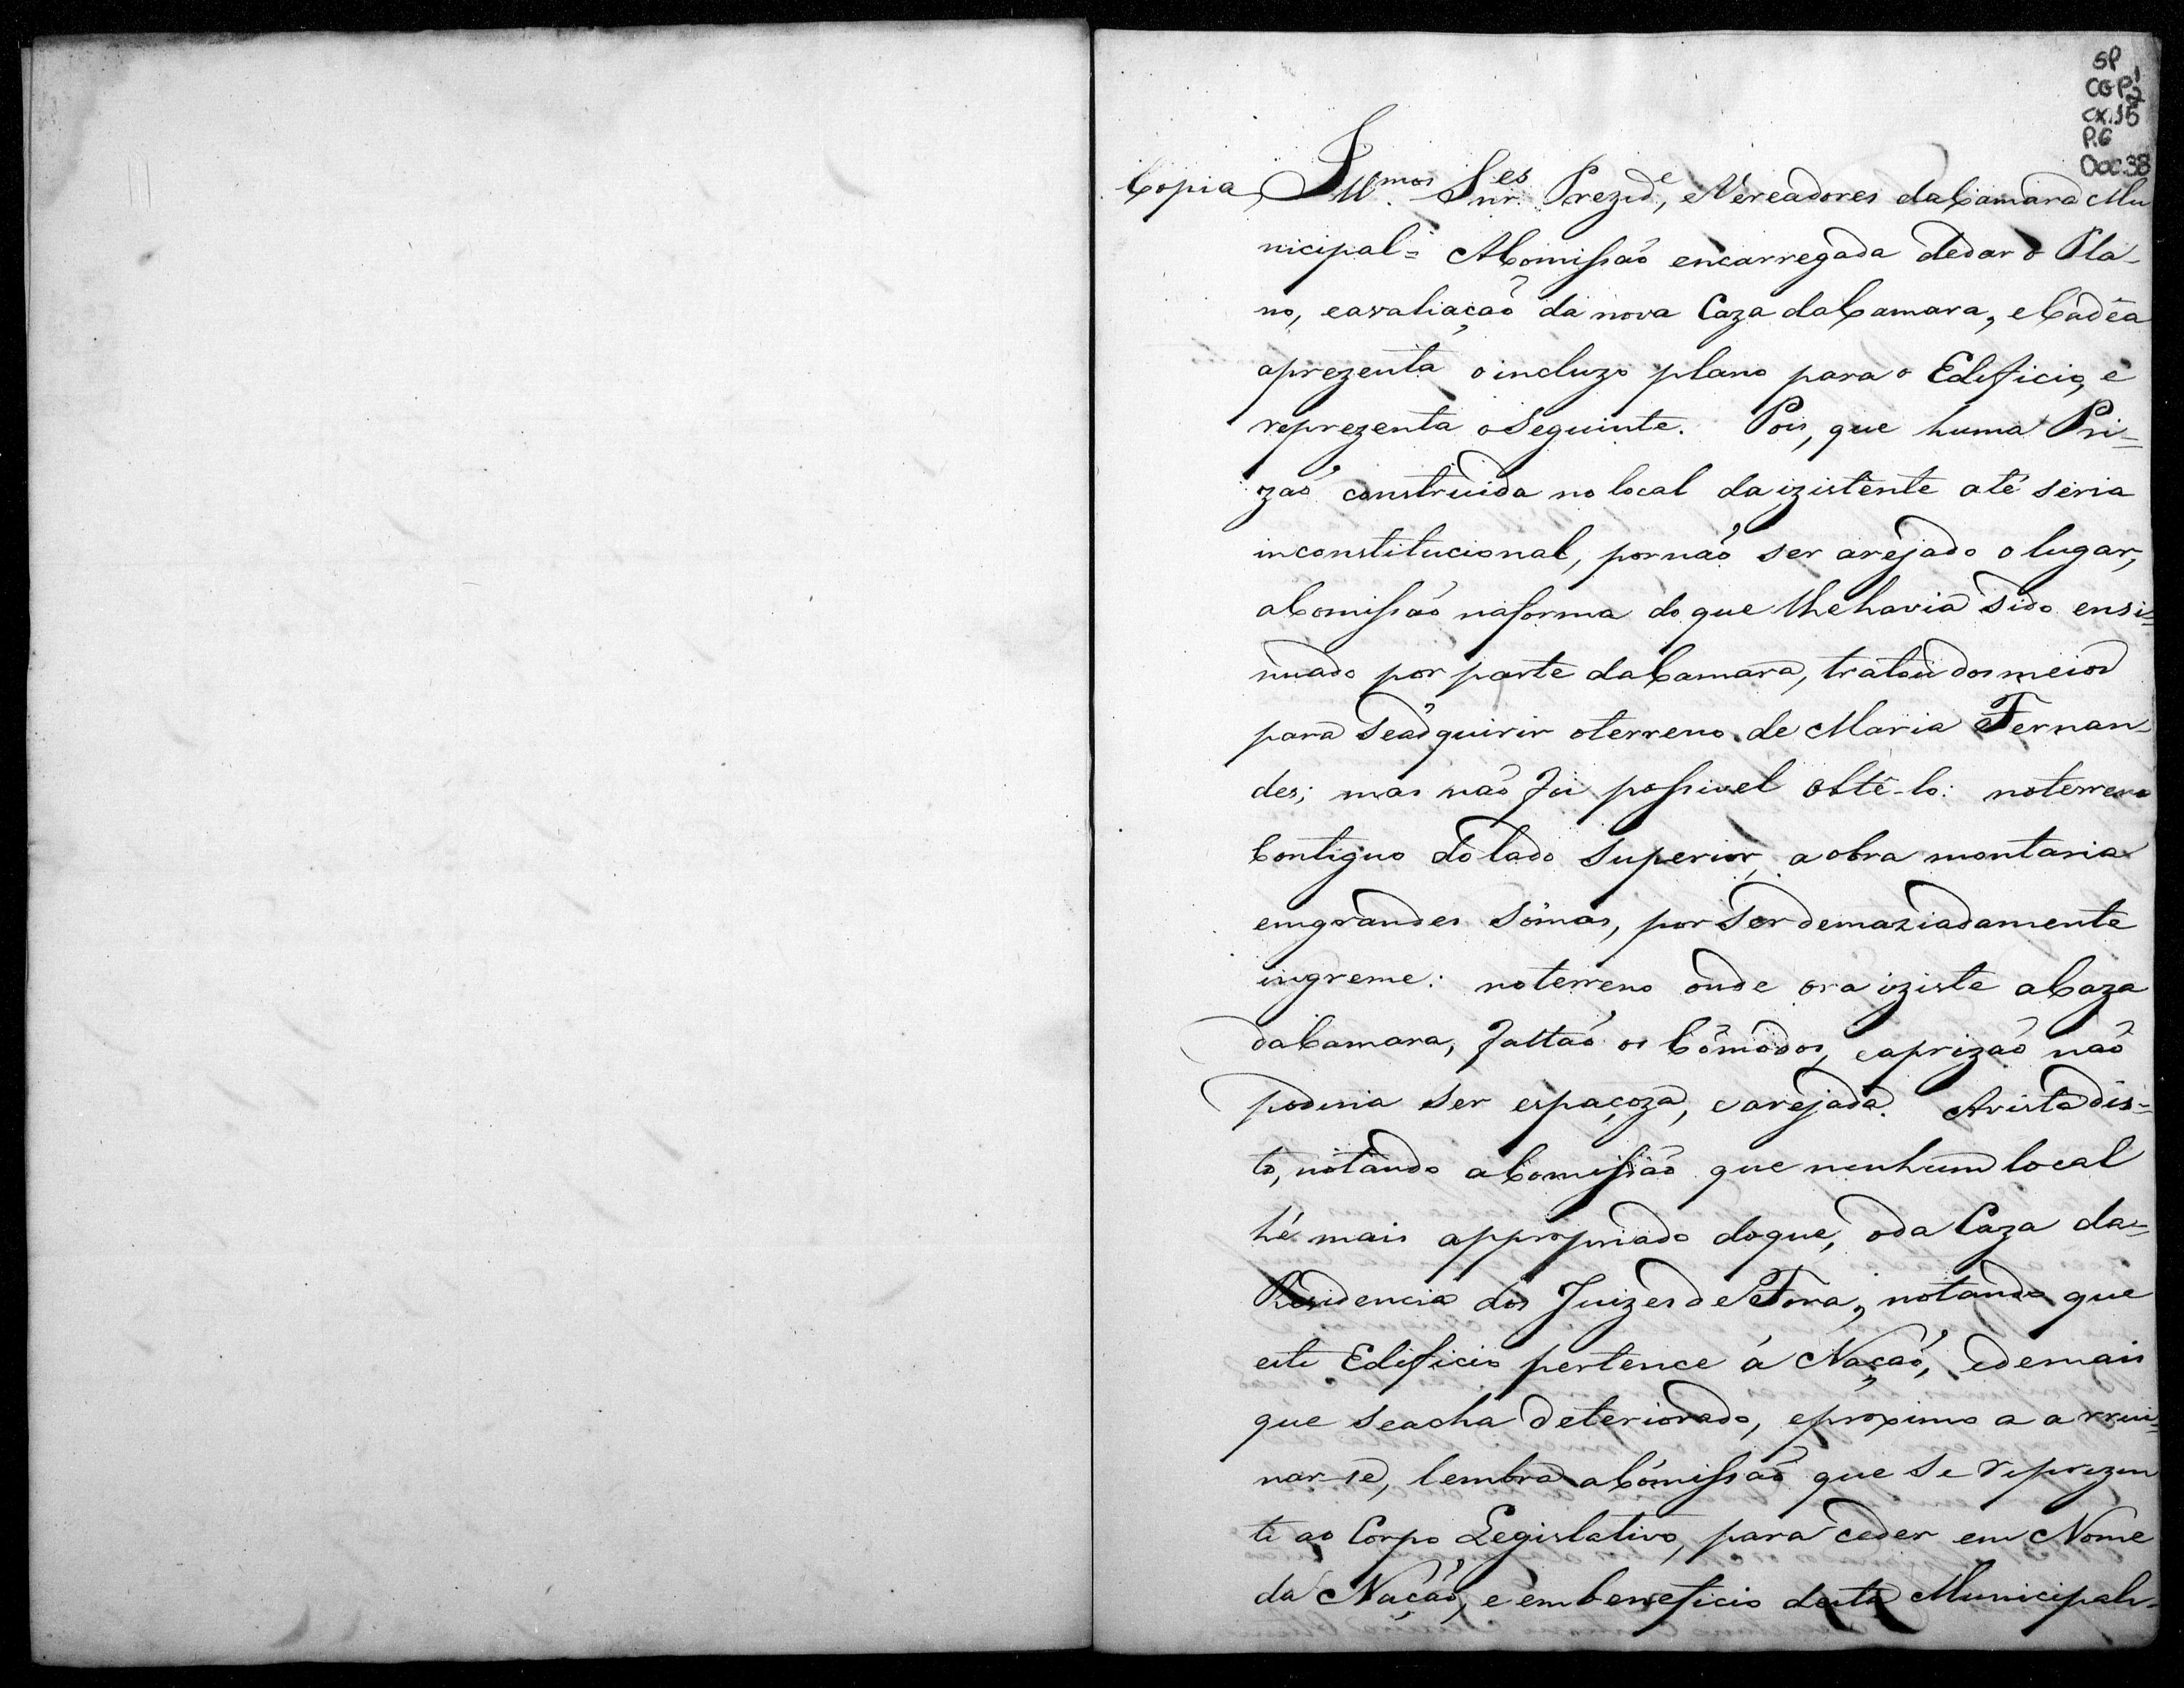 SP
CGP1
CX.15
P.6
Doc 38
Copia Illmos Snres Prezide, e Vereadores da Camara Mu
nicipal = A Comissão encarregada de dar o Pla-
no, e avaliação da nova Caza da Camara, e Cadêa
aprezenta o incluzo plano para o Edificio, e
reprezenta o Seguinte. Pois, que huma Pri-
zaõ construida no local da izistente até seria
inconstitucional, por naõ ser arejado o lugar,
a Comissaõ na forma do que lhe havia sido ensi-
nuado por parte da Camara, tratou dos meios
para se adquirir o terreno de Maria Fernan-
des; mas naõ foi possivel obtê-lo: no terreno
Contiguo do lado Superior, a obra montaria
em grandes Sômas, por Ser demaziadamente
ingreme: no terreno onde ora iziste a Caza
da Camara, faltaõ os Cômodos, e a prizaõ naõ
poderia ser espaçoza, e arejada. Avista dis-
to, notando a Comissão que nenhum local
hé mais appropriado do que, o da Caza da-
Residencia dos Juizes de Fora, notando que
este Edificio pertence á Naçaõ, e demais
que se acha deteriorado, e proximo a arrui-
nar-se, lembra a Comissaõ que se reprezen
te ao Corpo Legislativo, para ceder em Nome
da Naçaõ, e em beneficio desta Municipali-